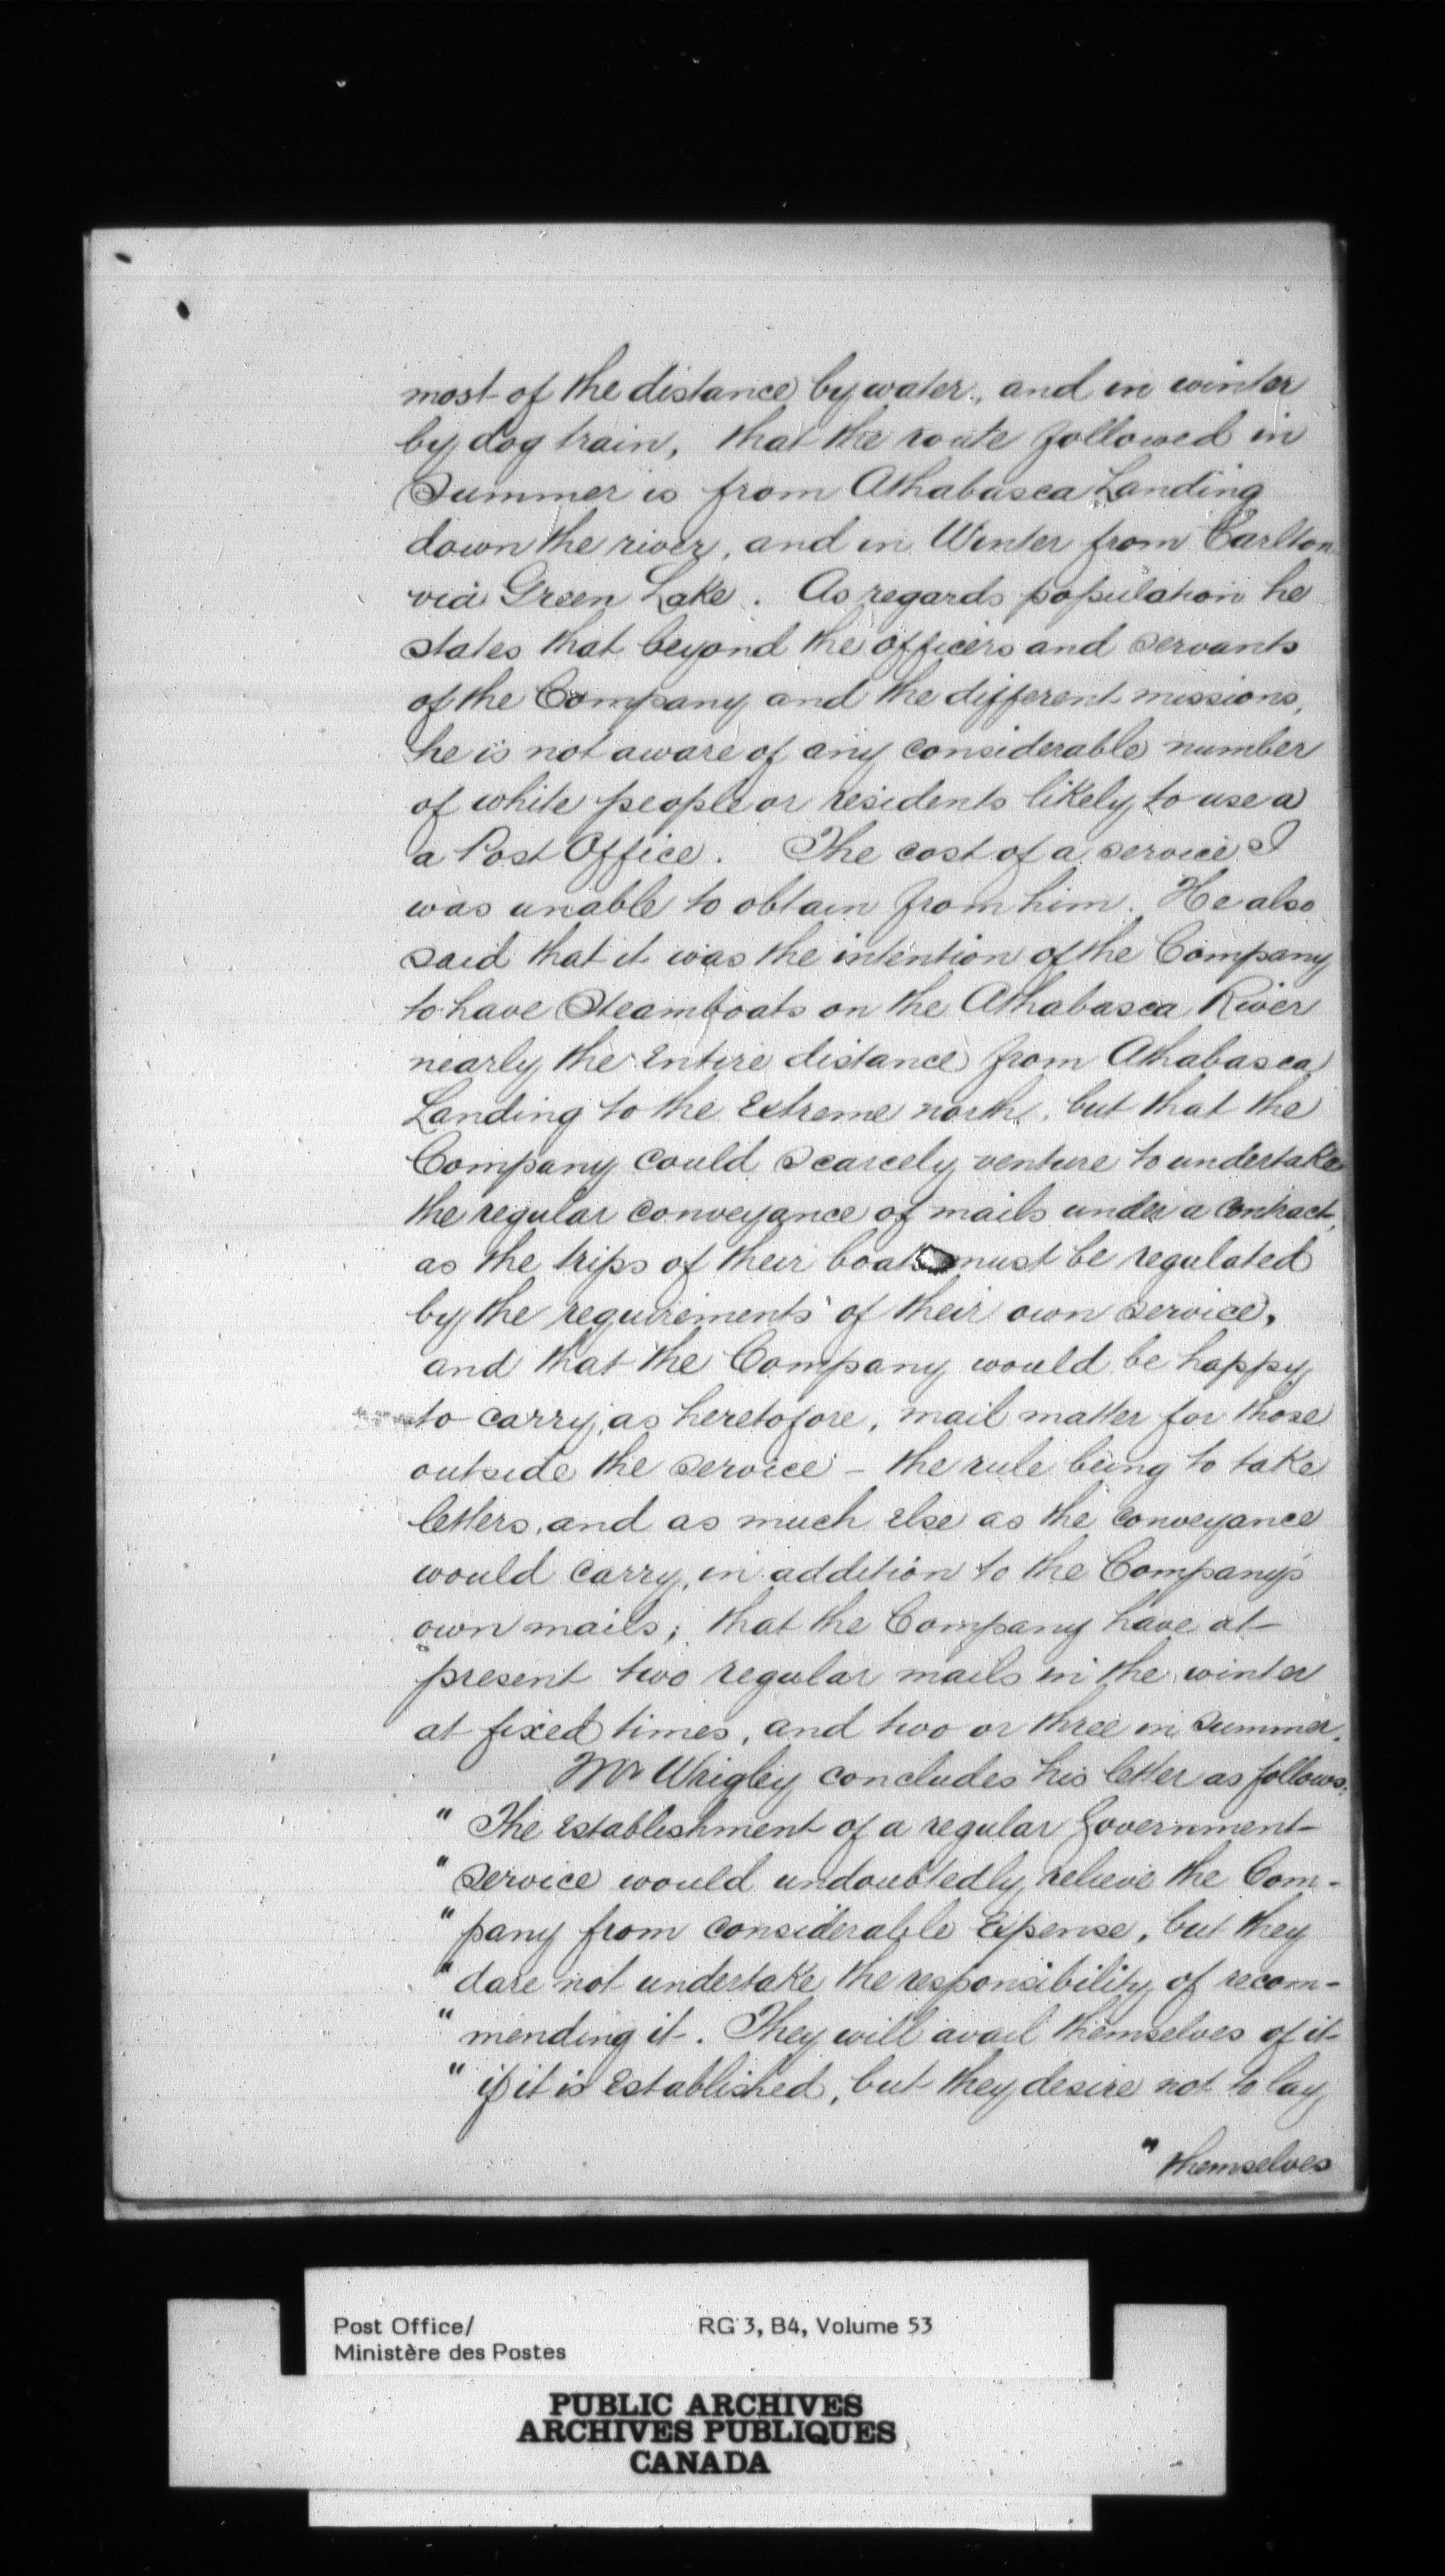 most of the distance by water, and in winter
by dog train, that the route followed in
Summer is from Athabasca Landing
down the river, and in Winter from Carlton
via Green Lake. As regards population he
states that beyond the officers and servants
of the Company and the different missions,
he is not aware of any considerable number
of white people or residents likely to use a
a Post Office. The cost of a service I
was unable to obtain from him. He also
said that it was the intention of the Company
to have Steamboats on the Athabasca River
nearly the Entire distance from Athabasca
Landing to the Extreme north, but that the
Company could scarcely venture to undertake
the regular conveyance of mails under a contract,
as the trips of their boats must be regulated
by the requirements of their own service,
and that the Company would be happy
to carry, as heretofore, mail matter for those
outside the service - the rule being to take
letters, and as much else as the conveyance
would carry, in addition to the Company's
own mails; that the Company have at
present two regular mails in the winter
at fixed times, and two or three in summer.
Mr Wrigley concludes his letter as follows:
" The Establishment of a regular Government
" service would undoubtedly relieve the Com-
" pany from considerable Expense, but they
" dare not undertake the responsibility of recom-
" mending it. They will avail themselves of it
" if it is Established, but they desire not to lay
" themselves
Post Office/ RG 3, B4, Volume 53
Ministère des Postes
PUBLIC ARCHIVES
ARCHIVES PUBLIQUES
CANADA